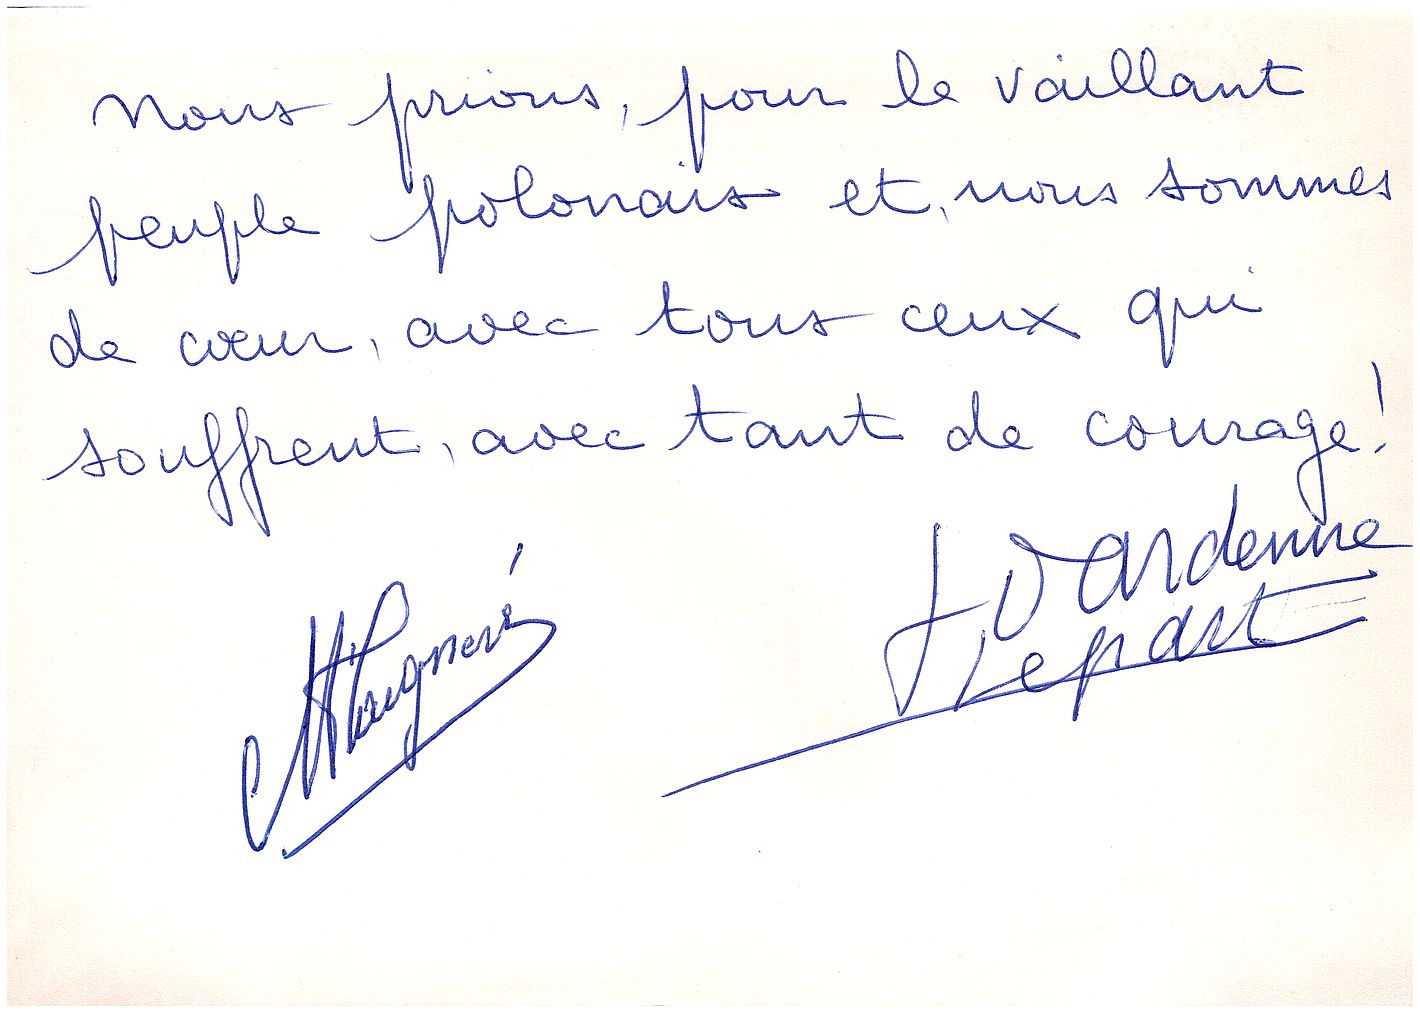 Nous prions, pour le vaillant
peuple polonais et, nous sommes
de cœur, avec tous ceux qui
souffrent, avec tant de courage!
Dardenne
Lepart